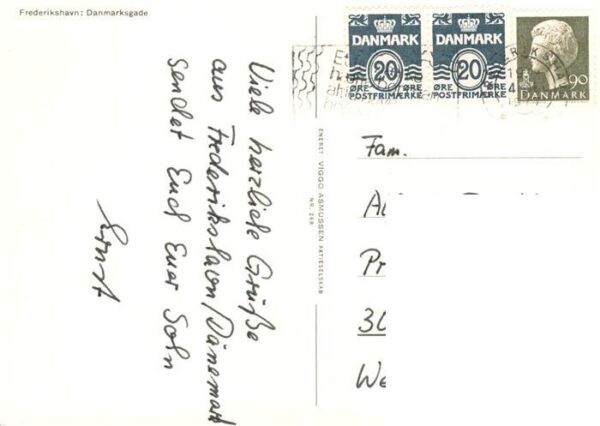 Frederikshavn: Danmarksgade
Viele herzliche Grüße
aus Frederikshavn/Dänemark
sendet Euch Euer Sohn
Ernst
ENERET VIGGO ASMUSSEN AKTIESELSKAB
NR. 268
DANMARK
20
ØRE ØRE
POSTFRIMÆRKE
DANMARK
20
ØRE ØRE
POSTFRIMÆRKE
90
DANMARK
Fam.
A
Pr
30
We